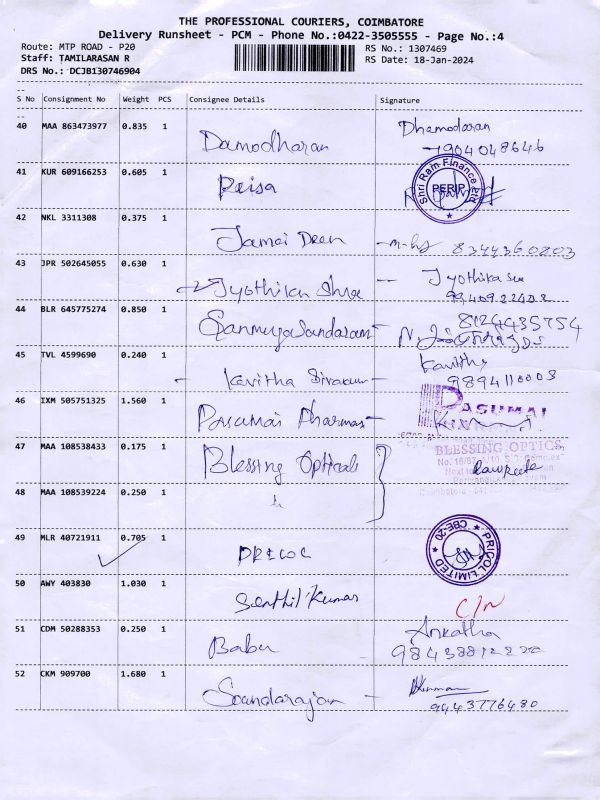 THE PROFESSIONAL COURIERS, COIMBATORE
Delivery Runsheet - PCM - Phone No.:0422-3505555 - Page No.:4
Route: MTP ROAD - P20
RS No.: 1307469
Staff: TAMILARASAN R
RS Date: 18-Jan-2024
DRS No.: DCJB130746904
S No Consignment No Weight PCS Consignee Details Signature
40 MAA 863473977 0.835 1 Damodharan Dhamodaran
7904048646
41 KUR 609166253 0.605 1 Reisa Shri Ram Finance
PERIP
42 NKL 3311308 0.375 1 Jamai Deen 8344360203
43 JPR 502645055 0.630 1 Jyothika Shree Jyothika
9940922402
44 BLR 645775274 0.850 1 Sanmugasundaram 8124435754
45 TVL 4599690 0.240 1 Kavitha Sivakum Kavitha
9894110003
46 IXM 505751325 1.560 1 Pasumai Pharmas PASUMAI
47 MAA 108538433 0.175 1 Blessing Opticals BLESSING OPTICS
48 MAA 108539224 0.250 1
49 MLR 40721911 0.705 1 PRICOL PRICOL LIMITED
CBE-20
50 AWY 403830 1.030 1 Senthil Kumar C/N
51 CDM 50288353 0.250 1 Babu Ankatha
52 CKM 909700 1.680 1 Soundarajan
9443776480